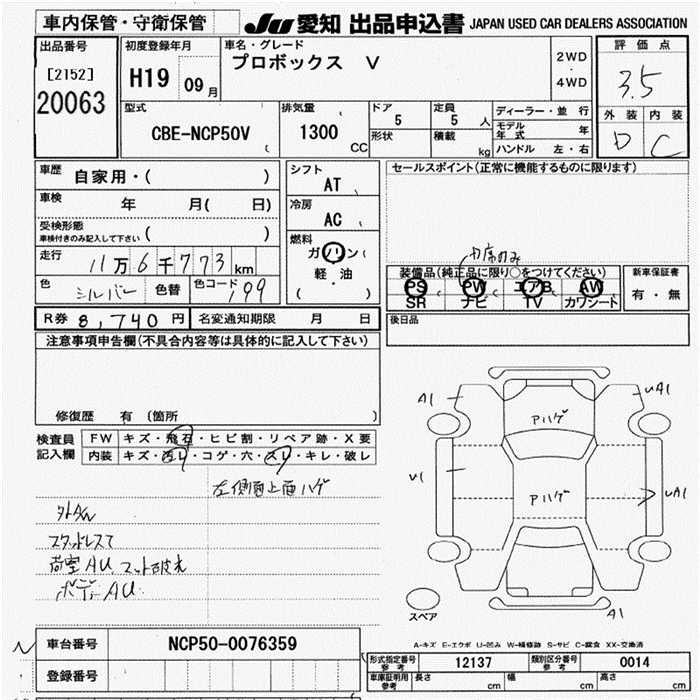 車内保管・守衛保管 JU 愛知 出品申込書 JAPAN USED CAR DEALERS ASSOCIATION
出品番号 初度登録年月 車名・グレード 評価点
[2152] H19 09月 プロボックス V 2WD・4WD 3.5
20063
型式 排気量 ドア 定員 ディーラー・並行 外装 内装
CBE-NCP50V 1300 CC 5 5人 モデル年式 年 D C
形状 積載 kg ハンドル 左・右
車歴 自家用・( ) シフト AT セールスポイント(正常に機能するものに限ります)
車検 年 月( 日) 冷房 AC
受検形態 ( )
車検付きのみ記入して下さい
燃料
走行 11万6千773km ガソリン( 軽・油 ( )
装備品(純正品に限り○をつけてください) 新車保証書
色 シルバー 色替 色コード 199 PS PW エアB AW 有・無
SR ナビ TV カワシート
R券 8,740円 名変通知期限 月 日 後日品
注意事項申告欄(不具合内容等は具体的に記入して下さい)
修復歴 有 (箇所 )
検査員記入欄 FW キズ・飛石・ヒビ割・リペア跡・X要
内装 キズ・汚レ・コゲ・穴・スレ・キレ・破レ
左側面上面ハゲ
スタッドレス
荷室AU
ボディAU
A1 アハゲ UA1
U1 アハゲ UA1
A1
スペア
A-キズ E-エクボ U-凹み W-補修跡 S-サビ C-腐食 XX-交換済
車台番号 NCP50-0076359
登録番号
形式指定番号 参考 12137 類別区分番号 参考 0014
車庫証明用 参考 長さ cm 幅 cm 高さ cm